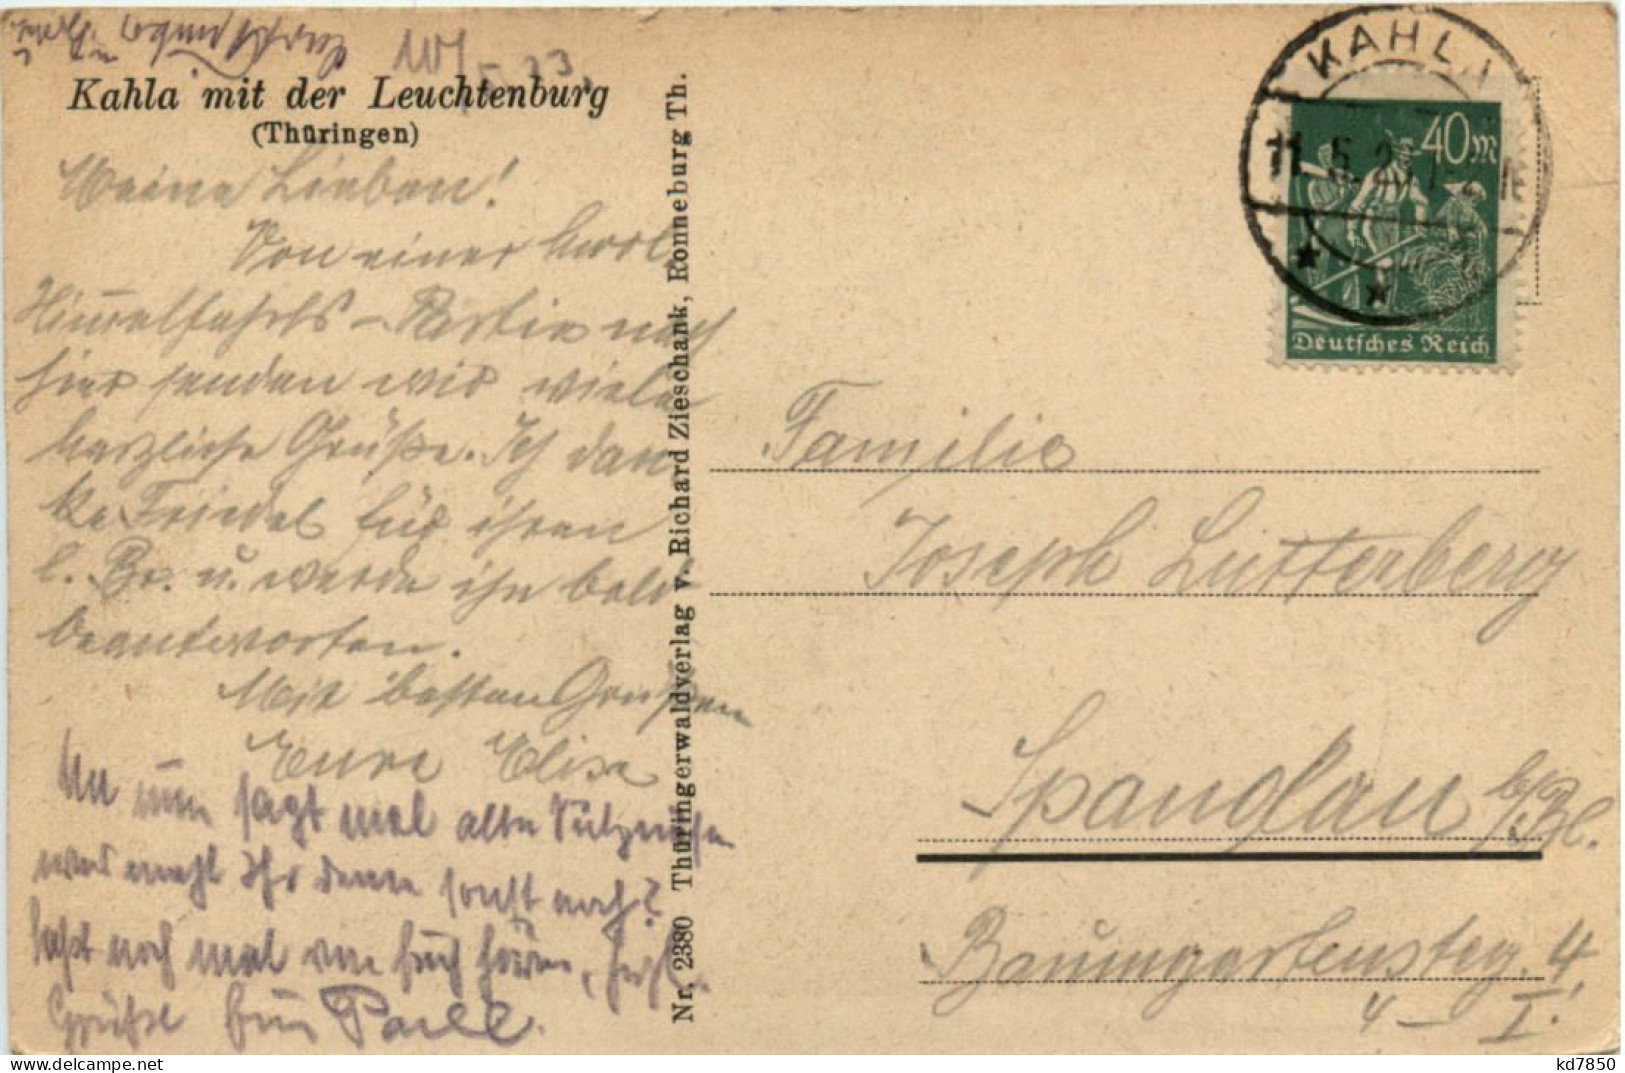 10/5. 23.
Kahla mit der Leuchtenburg
(Thüringen)
Meine Lieben!
Von einer
Himmelfahrts-Partie nach
hier senden wir viele
herzliche Grüße. Ich dan
ke Friedel für ihren
l. Br. u. werde ihn bald
beantworten.
Mit besten Grüßen
Eure Elise
Na nun sagt mal alte
was macht Ihr denn sonst noch?
laßt noch mal von Euch hören, herzl.
Grüße Eur Paul.
Nr. 2380 Thüringerwaldverlag v. Richard Zieschank, Ronneburg Th.
KAHLA
11.5.23.
40 M
Deutsches Reich
Familie
Joseph Lutterberg
Spandau
Baumgartensteg. 4
4 – I.
kd7850